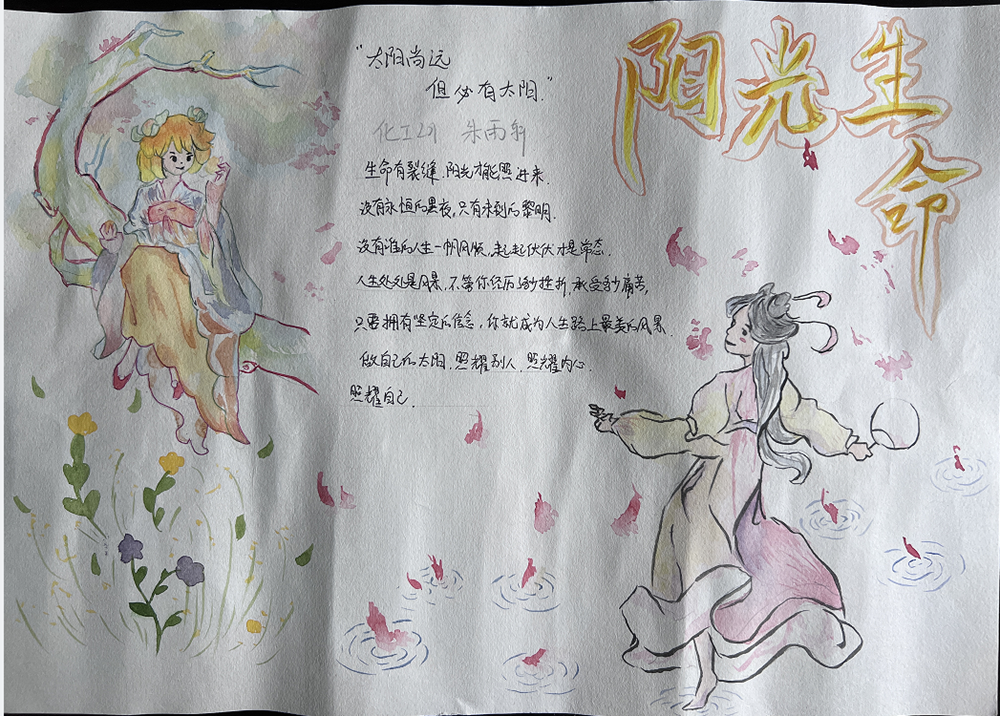 阳光生
命
"太阳尚远
但必有太阳."
化工201 朱雨轩
生命有裂缝,阳光才能照进来.
没有永恒的黑夜,只有未到的黎明.
没有谁的人生一帆风顺,起起伏伏才是常态.
人生处处是风景,不管你经历多少挫折,承受多少痛苦,
只要拥有坚定的信念,你就成为人生路上最美的风景.
做自己的太阳,照耀别人,照耀内心.
照耀自己.